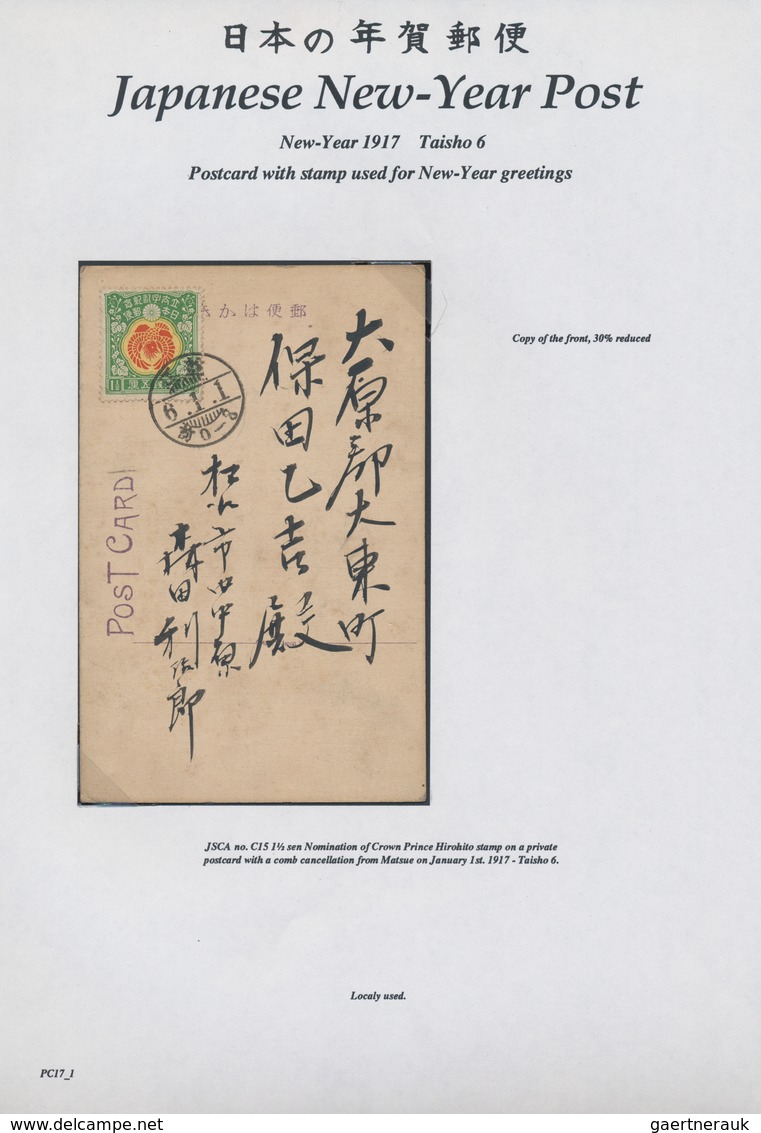 日本の年賀郵便
Japanese New-Year Post
New-Year 1917 Taisho 6
Postcard with stamp used for New-Year greetings
Copy of the front, 30% reduced
郵便はかき
大原郡大東町
保田乙吉殿
松江市内中原
森田利治郎
POST CARD
6.1.1
0-8
1½
JSCA no. C15 1½ sen Nomination of Crown Prince Hirohito stamp on a private
postcard with a comb cancellation from Matsue on January 1st. 1917 - Taisho 6.
Localy used.
PC17_1
delcampe.net
gaertnerauk